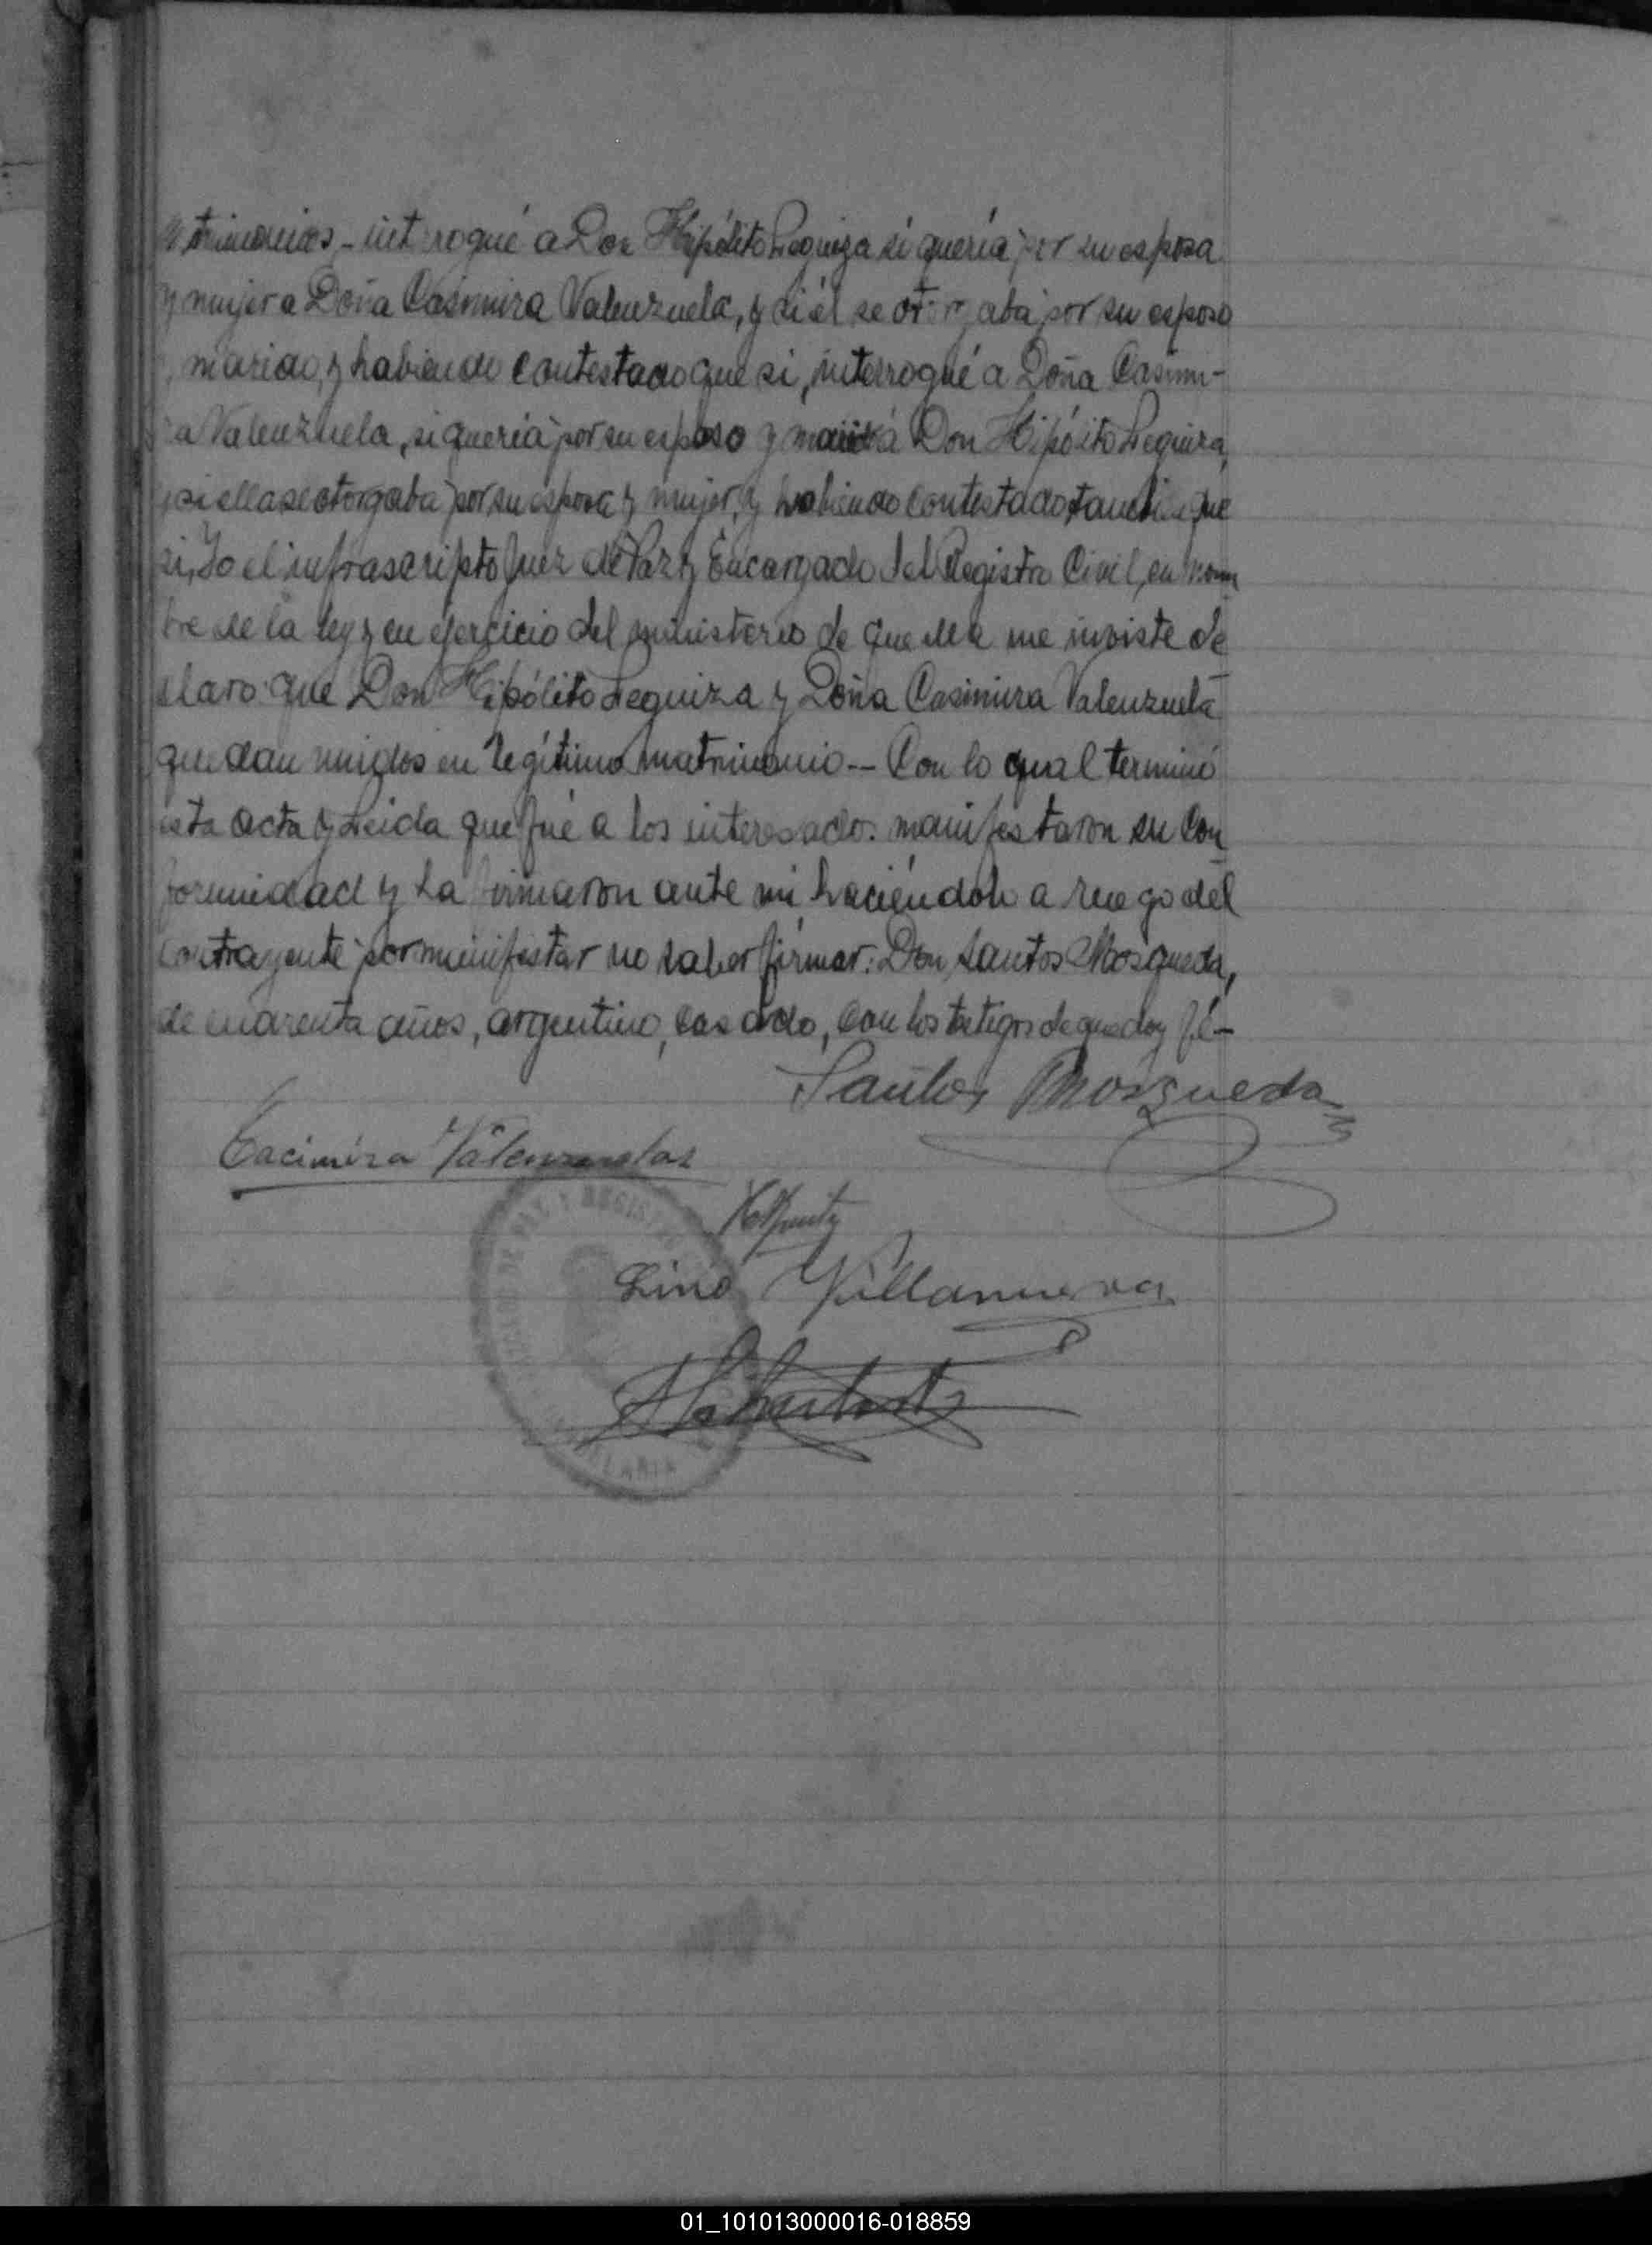 trimonios - interrogué a Don Hipólito Leguiza si quería por su esposa
y mujer a Doña Casimira Valenzuela, y si él se otorgaba por su esposo
marido, y habiendo contestado que si, interrogué a Doña Casimi-
ra Valenzuela, si quería por su esposo y marido á Don Hipólito Leguiza,
y si ella se otorgaba por su esposa y mujer, y habiendo contestado tambien que
si, Yo el infrascripto Juez de Paz y Encargado del Registro Civil, en nom
bre de la ley y en ejercicio del ministerio de que ella me inviste de
claro que Don Hipólito Leguiza y Doña Casimira Valenzuela
quedan unidos en legítimo matrimonio -- Con lo qual terminó
esta acta y Leida que fué a los interesados manifestaron su con
formidad y la firmaron ante mi haciéndolo a ruego del
contrayente por manifestar no saber firmar: Don Santos Mosqueda,
de cuarenta años, argentino, casado, con los testigos de que doy fé -
Santos Mosqueda
Cacimira Valenzuelaz
Lino Villanueva
DE PAZ Y REGISTRO
01_101013000016-018859